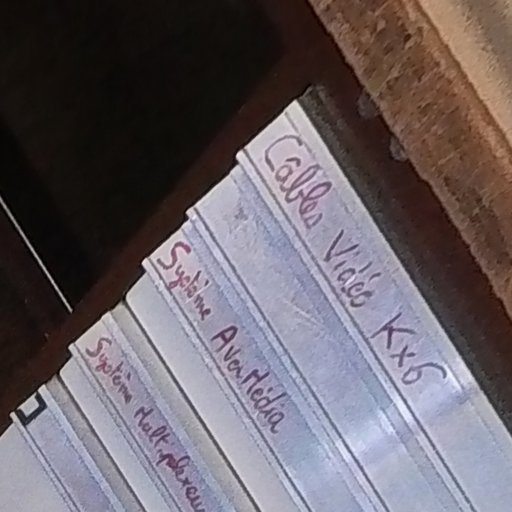 Câbles Vidéo Kx6
Système AverMédia
Système Multiplexeur